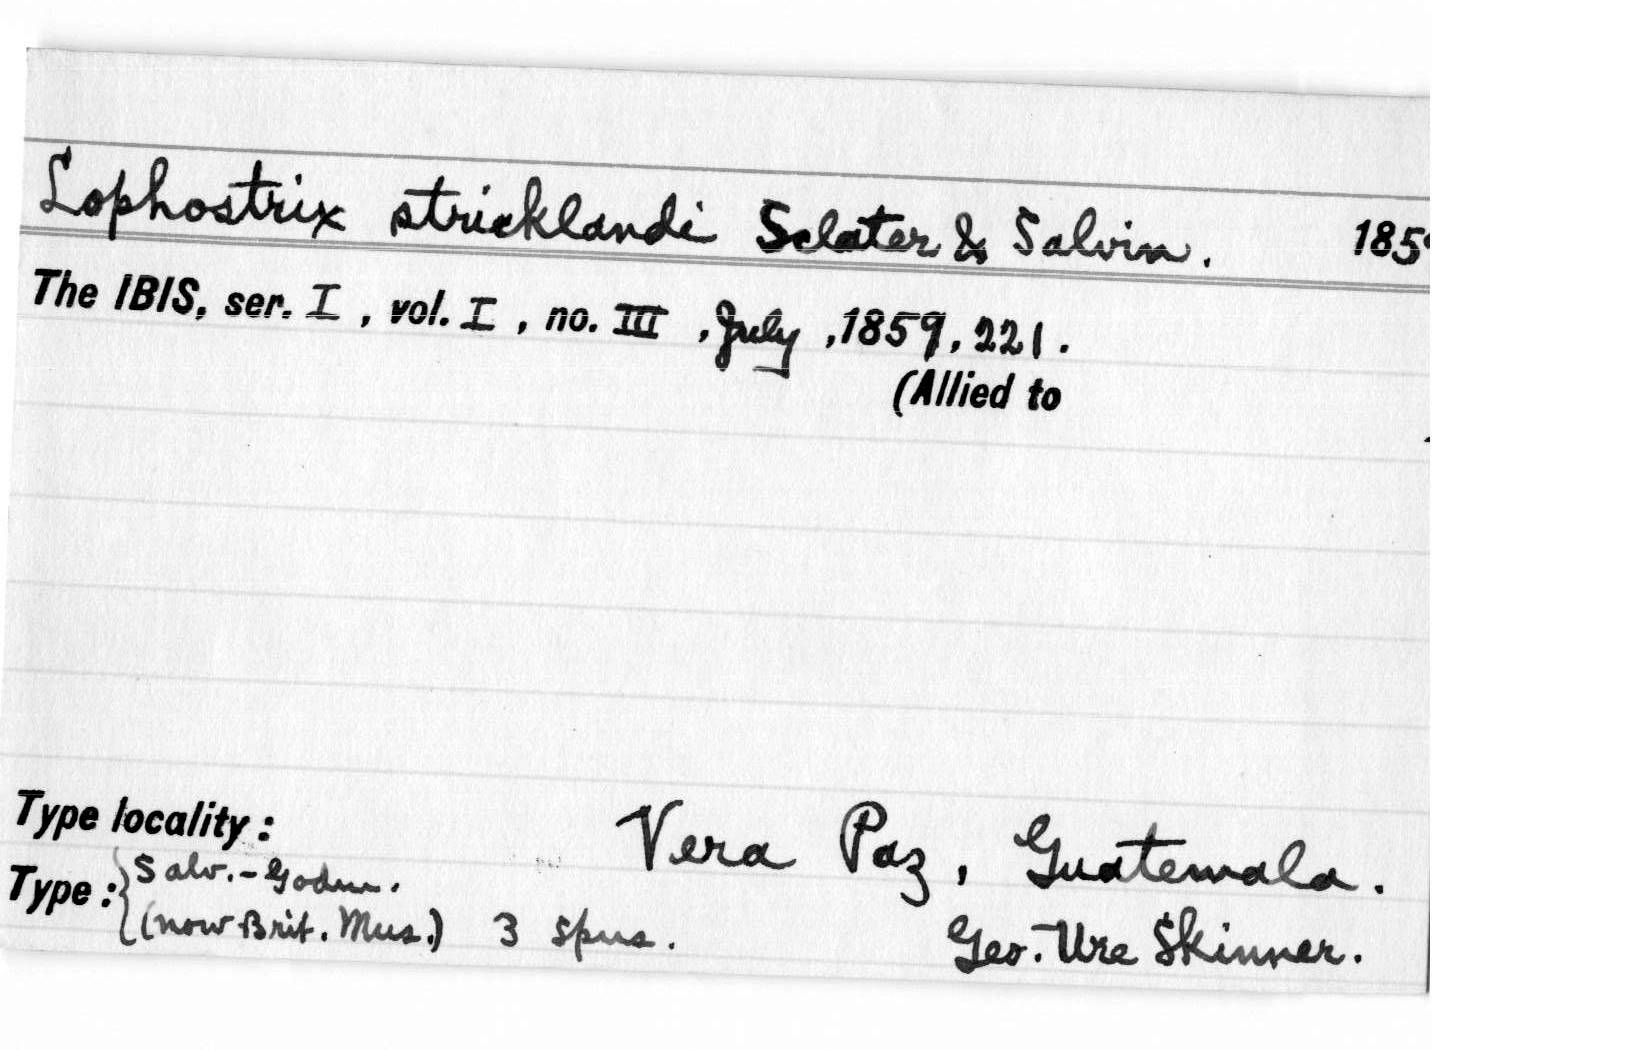 Lophostrix stricklandi Sclater & Salvin. 185
The IBIS, ser. I, vol. I, no. III, July, 1859, 221.
(Allied to
Type locality: Vera Paz, Guatemala.
Type: Salv.-Godm.
(now Brit. Mus.) 3 spns. Geo. Ure Skinner.